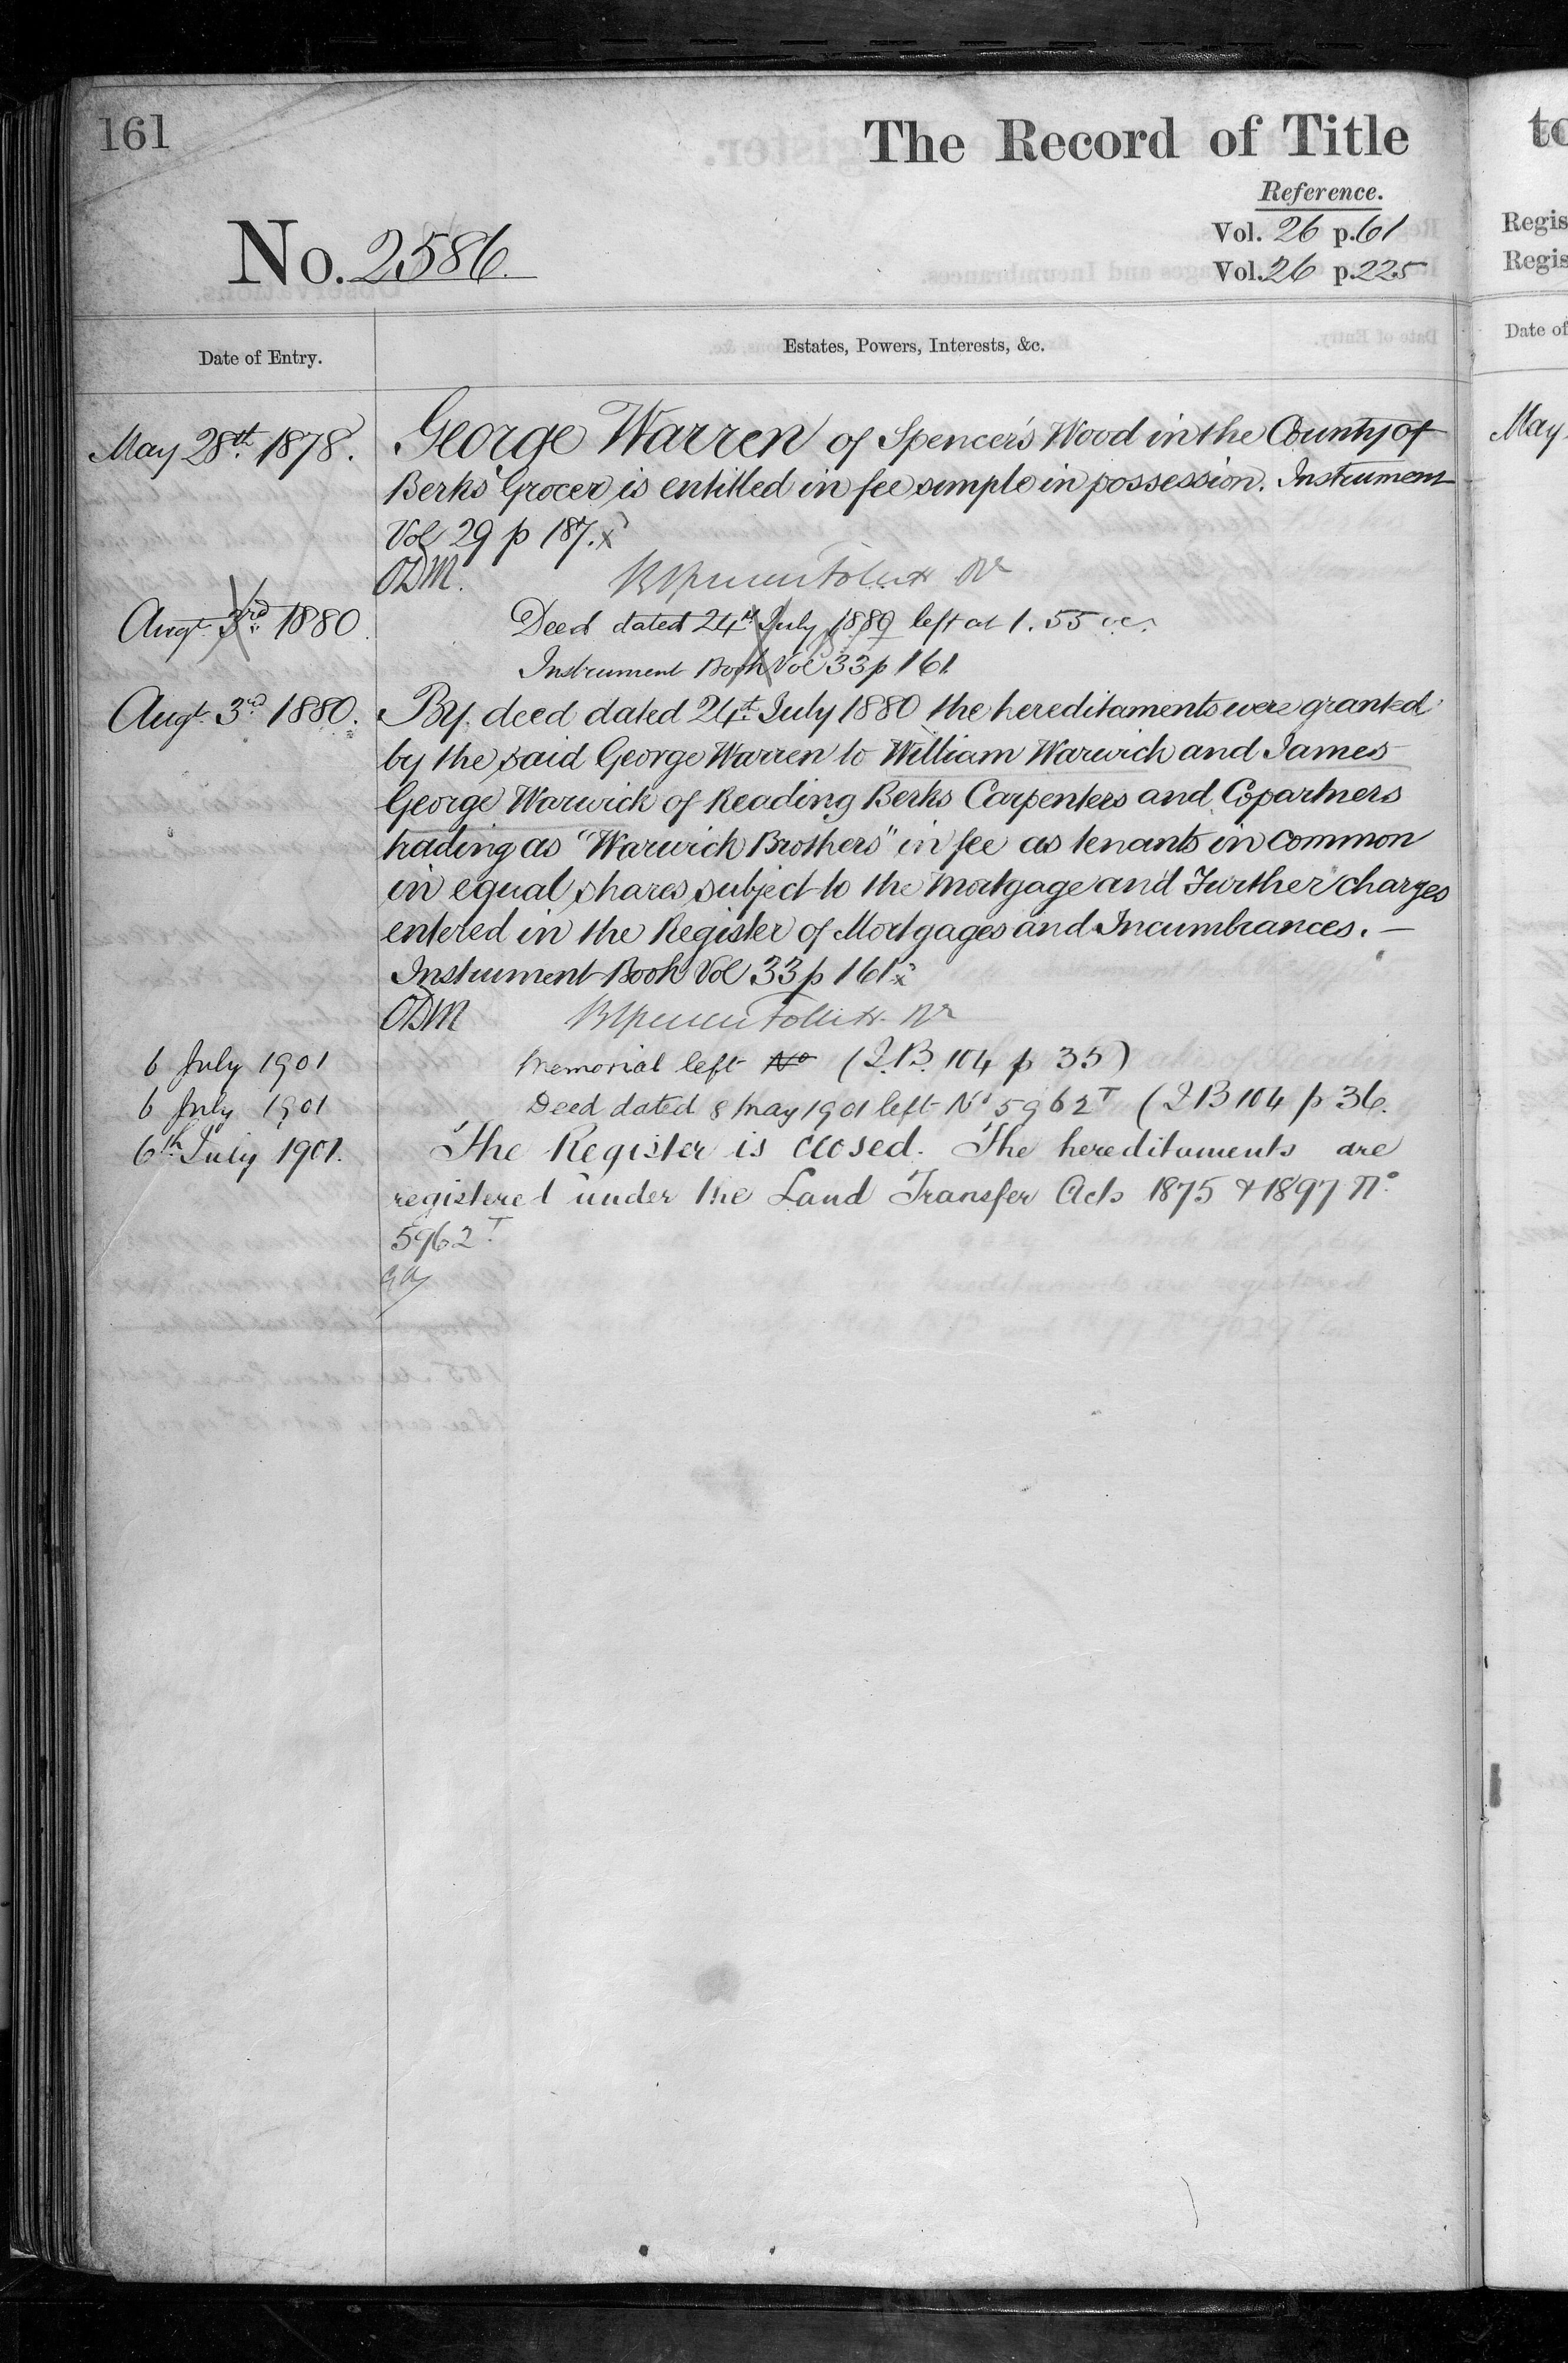 161
The Record of Title
Reference.
No. 2586.
Vol. 26 p. 61
Vol. 26 p. 225
Date of Entry.
Estates, Powers, Interests, &c.
May 28th. 1878. George Warren of Spencer's Wood in the County of
Berks Grocer is entitled in fee simple in possession. Instrument
Vol 29 p 187.
ODM.
Augt. 3rd. 1880 Deed dated 24th July 1880 left at 1.55
Instrument Book Vol 33 p 161
Augt. 3rd 1880. By deed dated 24th July 1880 the hereditaments were granted
by the said George Warren to William Warwick and James
George Warwick of Reading Berks Carpenters and Copartners
trading as "Warwick Brothers" in fee as tenants in common
in equal shares subject to the Mortgage and Further charges
entered in the Register of Mortgages and Incumbrances. —
Instrument Book Vol 33 p 161
ODM
6 July 1901 Memorial left No (I.B. 104 p 35)
6 July 1901 Deed dated 8 May 1901 left No 5962T (I B 104 p 36.
6th July 1901. The Register is closed. The hereditaments are
registered under the Land Transfer Acts 1875 & 1897 No.
5962T.
to
Regis
Regis
Date of
May